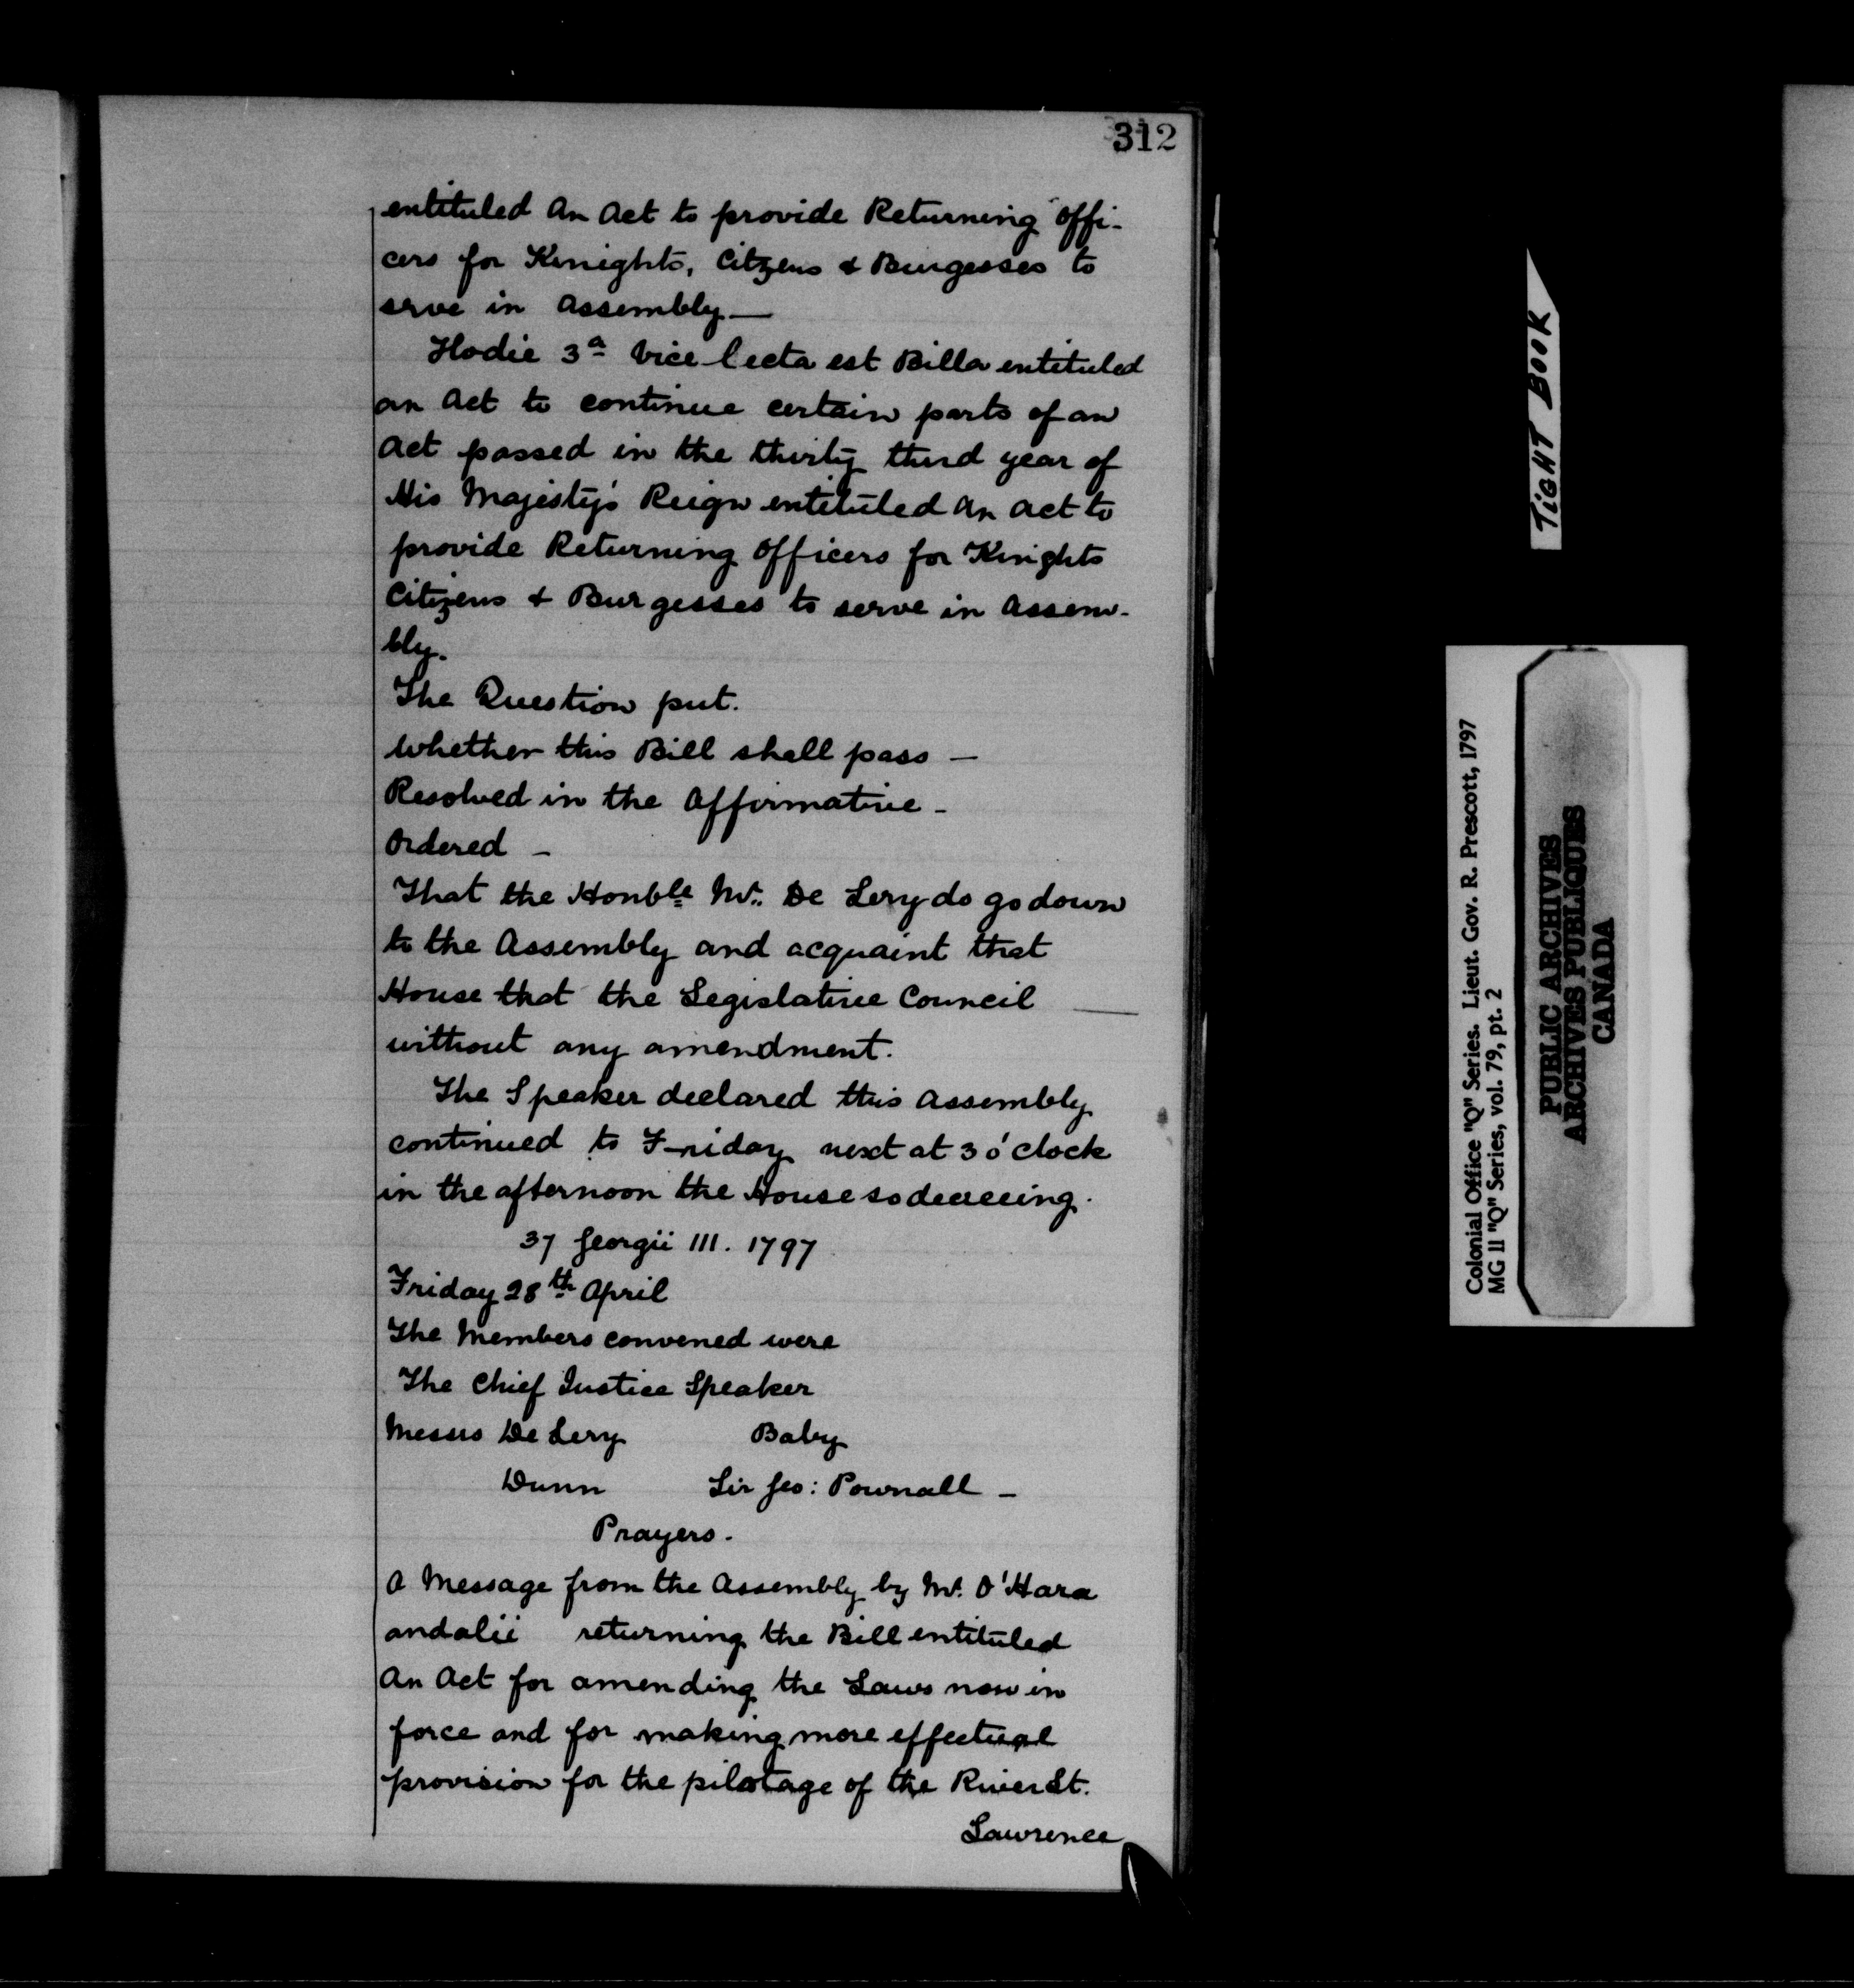 312
entituled An Act to provide Returning Offi-
cers for Knights, Citzens & Burgesses to
serve in Assembly —
Hodie 3a Vice lecta est Billa entituled
an Act to continue certain parts of an
Act passed in the thirty third year of
His Majesty's Reign entituled An Act to
provide Returning Officers for Knights
Citizens & Burgesses to serve in Assem-
bly.
The Question put.
Whether this Bill shall pass —
Resolved in the Affirmative -
Ordered -
That the Honble Mr. De Lery do go down
to the Assembly and acquaint that
House that the Legislative Council —
without any amendment.
The Speaker declared this Assembly
continued to Friday next at 3 o'clock
in the afternoon the House so decreeing.
37 Georgii III. 1797
Friday 28th April
The Members convened were
The Chief Justice Speaker
Messrs De Lery Baby
Dunn Sir Geo: Pownall -
Prayers.
A Message from the Assembly by Mr. O'Hara
and alii returning the Bill entituled
An Act for amending the Laws now in
force and for making more effectual
provision for the pilotage of the River St.
Lawrence
TIGHT BOOK
Colonial Office "Q" Series. Lieut. Gov. R. Prescott, 1797
MG 11 "Q" Series, vol. 79, pt. 2
PUBLIC ARCHIVES
ARCHIVES PUBLIQUES
CANADA